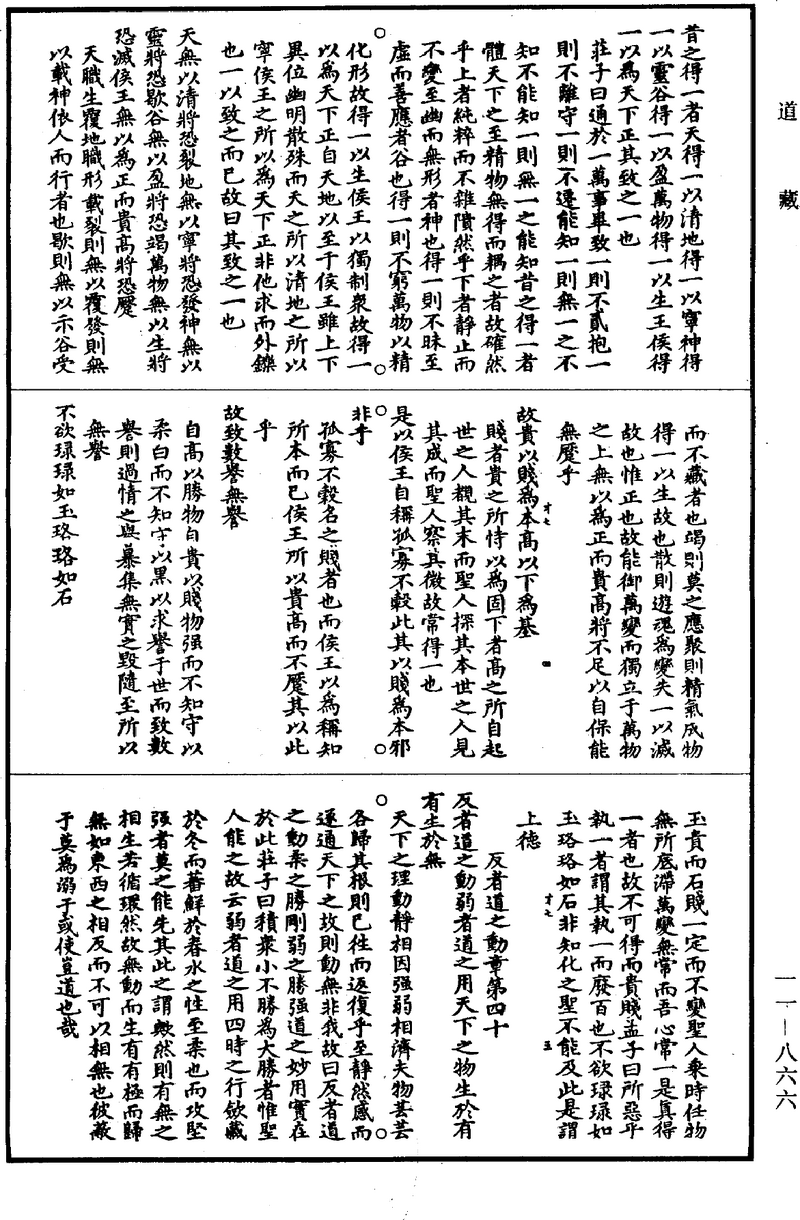 道藏
昔之得一者天得一以清地得一以寧神得
一以靈谷得一以盈萬物得一以生王侯得
一以為天下正其致之一也
莊子曰通於一萬事畢致一則不貳抱一
則不離守一則不遷能知一則無一之不
知不能知一則無一之能知昔之得一者
體天下之至精物無得而耦之者故確然
乎上者純粹而不雜隤然乎下者靜止而
不變至幽而無形者神也得一則不昧至
虛而善應者谷也得一則不窮萬物以精
化形故得一以生侯王以獨制衆故得一
以為天下正自天地以至于侯王雖上下
異位幽明散殊而天之所以清地之所以
寧侯王之所以為天下正非他求而外鑠
也一以致之而已故曰其致之一也
天無以清將恐裂地無以寧將恐發神無以
靈將恐歇谷無以盈將恐竭萬物無以生將
恐滅侯王無以為正而貴高將恐蹷
天職生覆地職形載裂則無以覆發則無
以載神依人而行者也歇則無以示谷受
而不藏者也竭則莫之應聚則精氣成物
得一以生故也散則遊魂為變失一以滅
故也惟正也故能御萬變而獨立于萬物
之上無以為正而貴高將不足以自保能
無蹷乎
故貴以賤為本高以下為基
賤者貴之所恃以為固下者高之所自起
世之人觀其末而聖人探其本世之人見
其成而聖人察其微故常得一也
是以侯王自稱孤寡不穀此其以賤為本邪
非乎
孤寡不穀名之賤者也而侯王以為稱知
所本而已侯王所以貴高而不蹷其以此
乎
故致數譽無譽
自高以勝物自貴以賤物强而不知守以
柔白而不知守以黑以求譽于世而致數
譽則過情之譽暴集無實之毀隨至所以
無譽
不欲琭琭如玉珞珞如石
玉貴而石賤一定而不變聖人乘時任物
無所底滯萬變無常而吾心常一是真得
一者也故不可得而貴賤孟子曰所惡乎
執一者謂其執一而廢百也不欲琭琭如
玉珞珞如石非知化之聖不能及此是謂
上德
反者道之動章第四十
反者道之動弱者道之用天下之物生於有
有生於無
天下之理動靜相因强弱相濟夫物芸芸
各歸其根則已往而返復乎至靜然感而
遂通天下之故則動無非我故曰反者道
之動柔之勝剛弱之勝强道之妙用實在
於此莊子曰積衆小不勝為大勝者惟聖
人能之故云弱者道之用四時之行斂藏
於冬而蕃鮮於春水之性至柔也而攻堅
强者莫之能先其此之謂歟然則有無之
相生若循環然故無動而生有有極而歸
無如東西之相反而不可以相無也彼蔽
于莫為溺于或使豈道也哉
一一—八六六